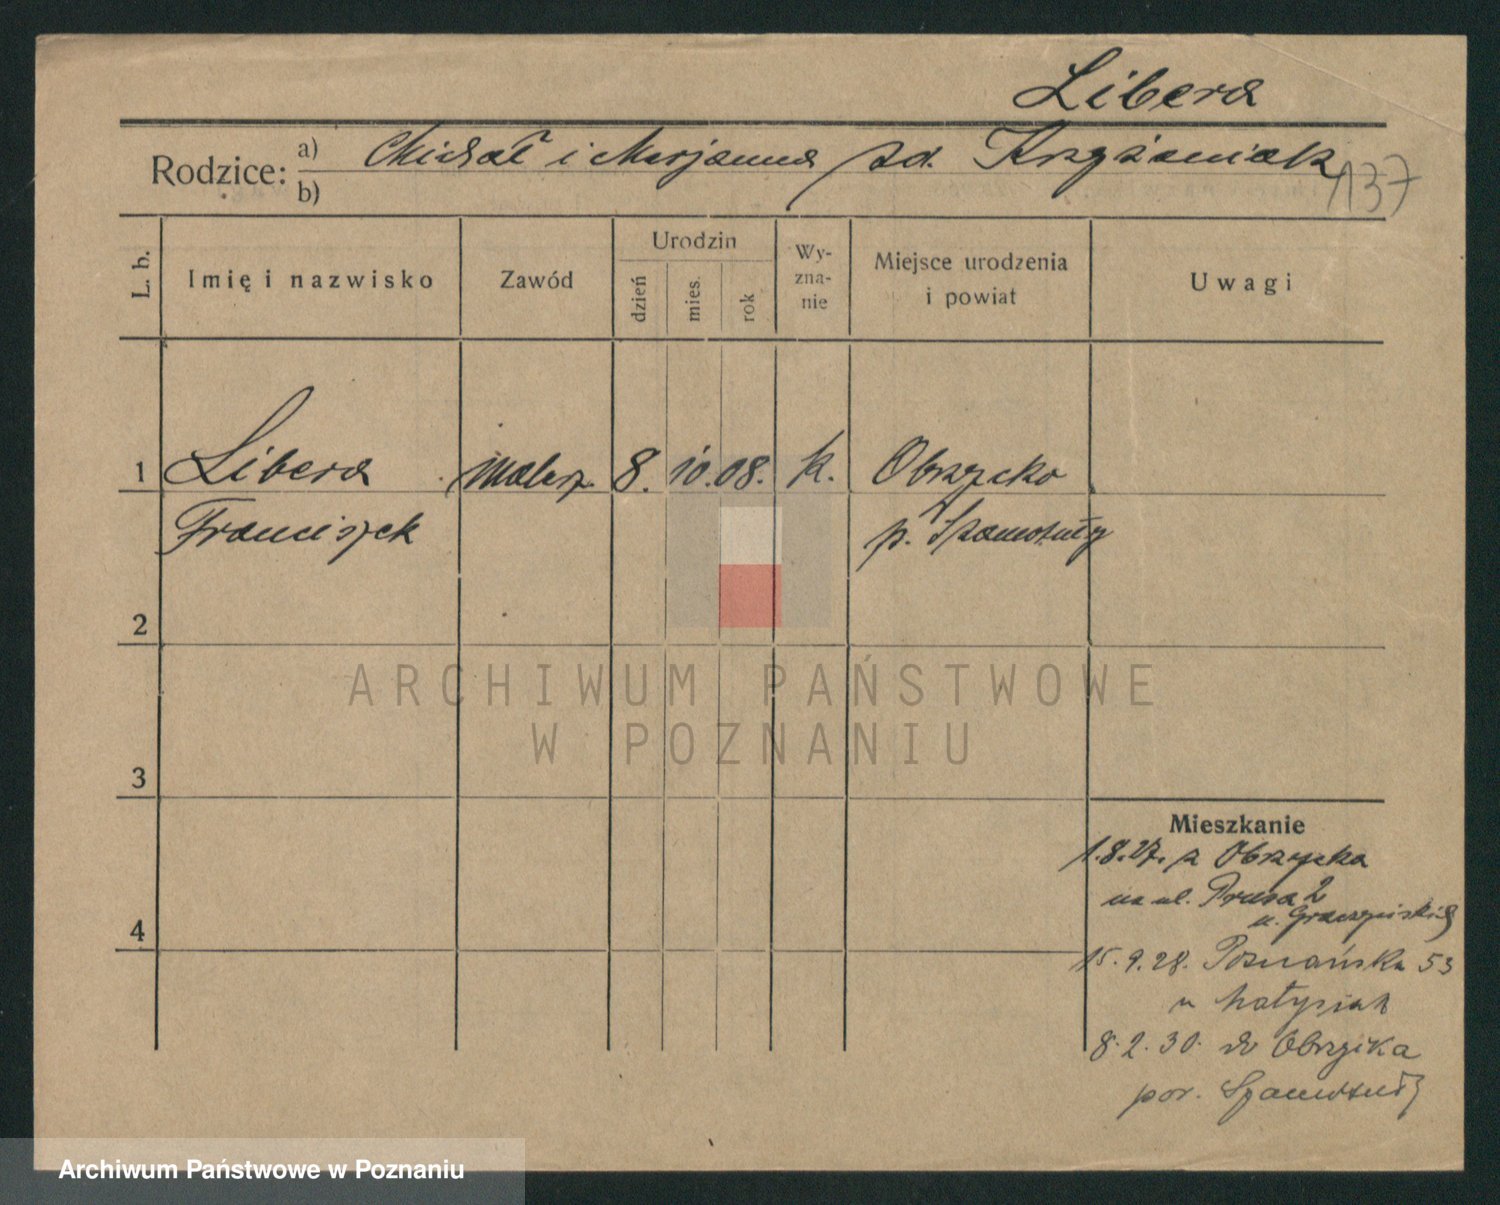 Libera
Rodzice: a) Michał i Marjanna zd. Krzyżaniak
b)
137
L. b. Imię i nazwisko Zawód Urodzin dzień mies. rok Wyznanie Miejsce urodzenia i powiat Uwagi
1 Libera malarz 8. 10. 08. k. Obrzycko
Franciszek p. Szamotuły
2
ARCHIWUM PAŃSTWOWE
W POZNANIU
3
Mieszkanie
1.8.27. z Obrzycka
na ul. Prusa 2
4
15.9.28. Poznańska 53
u Małysiak
8.2.30. do Obrzycka
pow. Szamotuły
Archiwum Państwowe w Poznaniu